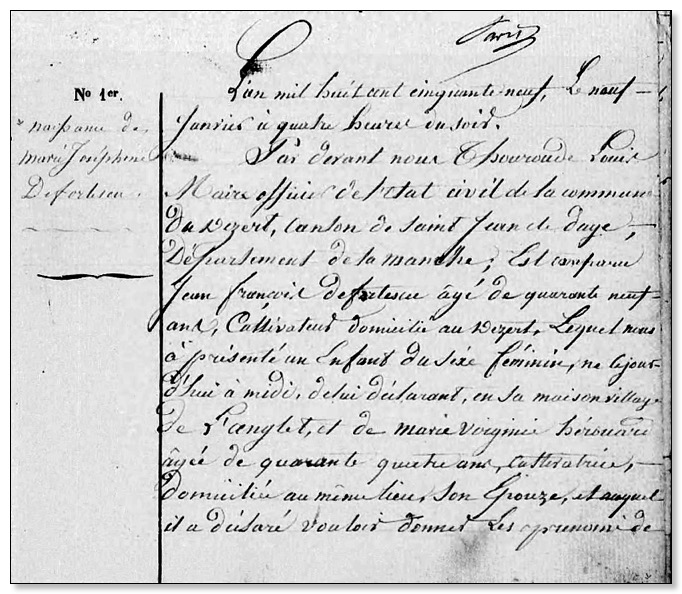 N° 1er.
naissance de
marie Joséphine
Defortescu.
L'an mil huit cent cinquante neuf, Le neuf
Janvier à quatre heures du soir.
Par devant nous Thouroude Louis
Maire officier de l'état civil de la commune
Du Dézert, Canton de Saint Jean de daye,
Département de la manche; Est comparu
Jean françois defortescu âgé de quarante neuf
ans, Cultivateur domicilié au Dezert, Lequel nous
à présenté un Enfant du sexe féminin, né cejour
d'hui à midi, de lui déclarant, en sa maison village
de et de marie Virginie hérouard
âgée de quarante quatre ans, Cultivatrice,
domiciliée au même lieu, Son Epouze, et auquel
il a déclaré vouloir donner Les prénoms de